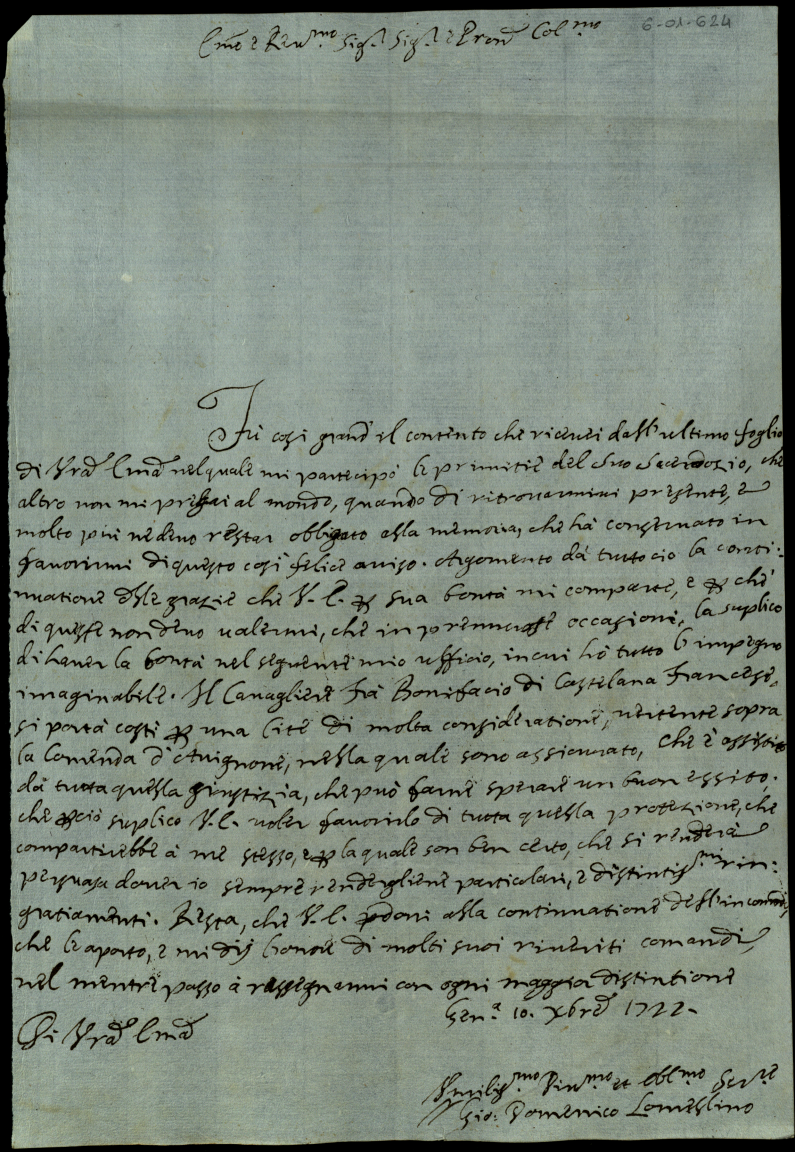 6-01-624
Em.º e Reu.mo Sig.r Sig.r e Pron. Col.mo
Fù cosi grand' il contento che riceuei dall' ultimo foglio
di Vra Em.a nel quale mi partecipò le primitie del Suo Sacerdozio, che
altro non mi pregai al mondo, quando di ritrouarmiui presente, e
molto più ne deuo restar obligato alla memoria, che hà conseruato in
fauorirmi di questo cosi felice auiso. Argomento dà tutto cio la conti:
nuatione delle grazie che V. E. per sua bontà mi comparte, e perche
di queste non deuo ualermi, che in premurose occasioni, la suplico
di hauer la bontà nel seguente mio ufficio, in cui hò tutto l'impegno
imaginabile. Il Caualliere Frà Bonifacio di Castelana Francese,
si portà costì per una lite di molta consideratione, uertente sopra
la Comenda d'Auignone, nella quale sono assicurato, che è assistito
dà tutta quella giustizia, che può farne sperare un buon essito,
che perciò suplico V. E. uoler fauorirlo di tutta quella protezione, che
compartirebbe à me stesso, e per la quale son ben certo, che si renderà
persuasa douer io sempre rendergliene particolari, e distintiss.mi rin:
gratiamenti. Resta, che V. E. perdoni alla continuatione dell' incommodi
che le aporto, e mi dij l'onore di molti suoi riueriti comandi,
nel mentre passo à rassegnarmi con ogni maggior distintione
Di Vra Em.a
Gen.a 10. Xbre 1722.
Vmiliss.mo Diu.mo et Obl.mo Ser.re
Gio: Domenico Lomellino